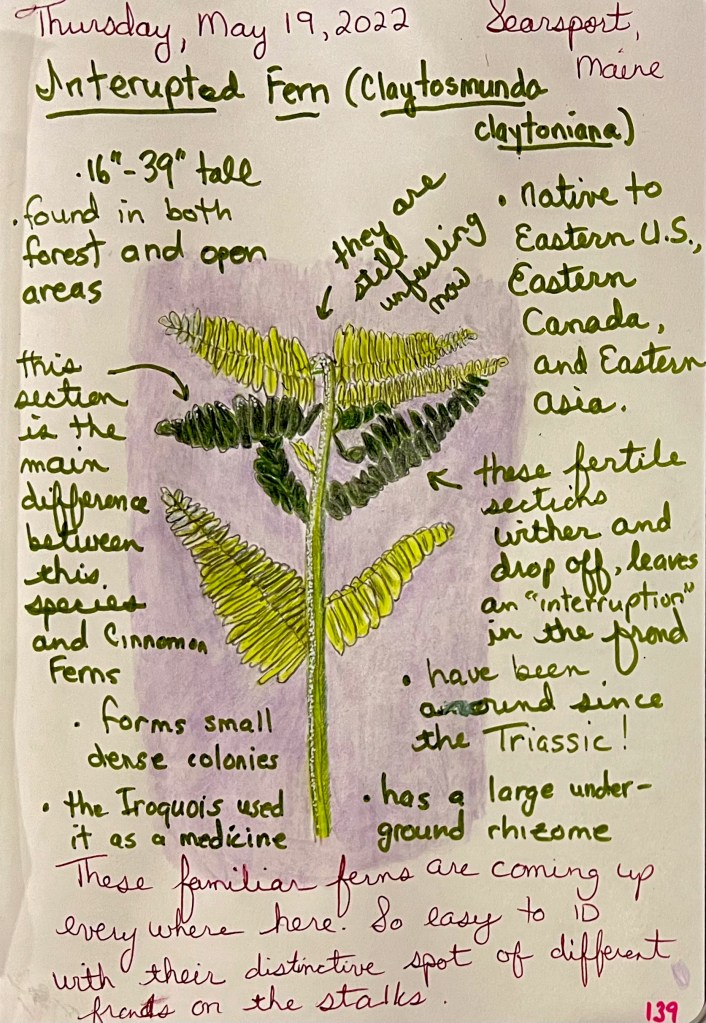 Thursday, May 19, 2022
Searsport,
Maine
Interupted Fern (Claytosmunda
claytoniana)
• 16"-39" tall
• found in both
forest and open
areas
they are
still
unfurling
now
• native to
Eastern U.S.,
Eastern
Canada,
and Eastern
asia.
this
section
is the
main
difference
between
this
species
and Cinnamon
Ferns
these fertile
sections
wither and
drop off, leaves
an "interruption"
in the frond
• have been
around since
the Triassic!
• forms small
dense colonies
• the Iroquois used
it as a medicine
• has a large under-
ground rhizome
These familiar ferns are coming up
everywhere here. So easy to ID
with their distinctive spot of different
fronds on the stalks.
139